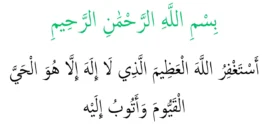 بِسْمِ اللَّهِ الرَّحْمَٰنِ الرَّحِيمِ
أَسْتَغْفِرُ اللَّهَ الْعَظِيمَ الَّذِي لَا إِلَهَ إِلَّا هُوَ الْحَيَّ
الْقَيُّومَ وَأَتُوبُ إِلَيْهِ